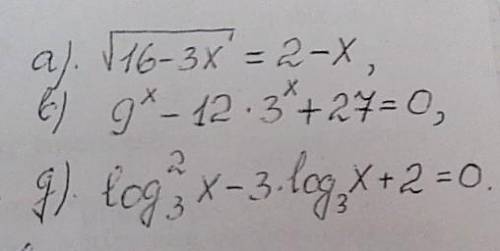 а). √(16-3x) = 2-x,
в) 9^x - 12 · 3^x + 27 = 0,
д). log₃² x - 3 · log₃ x + 2 = 0.